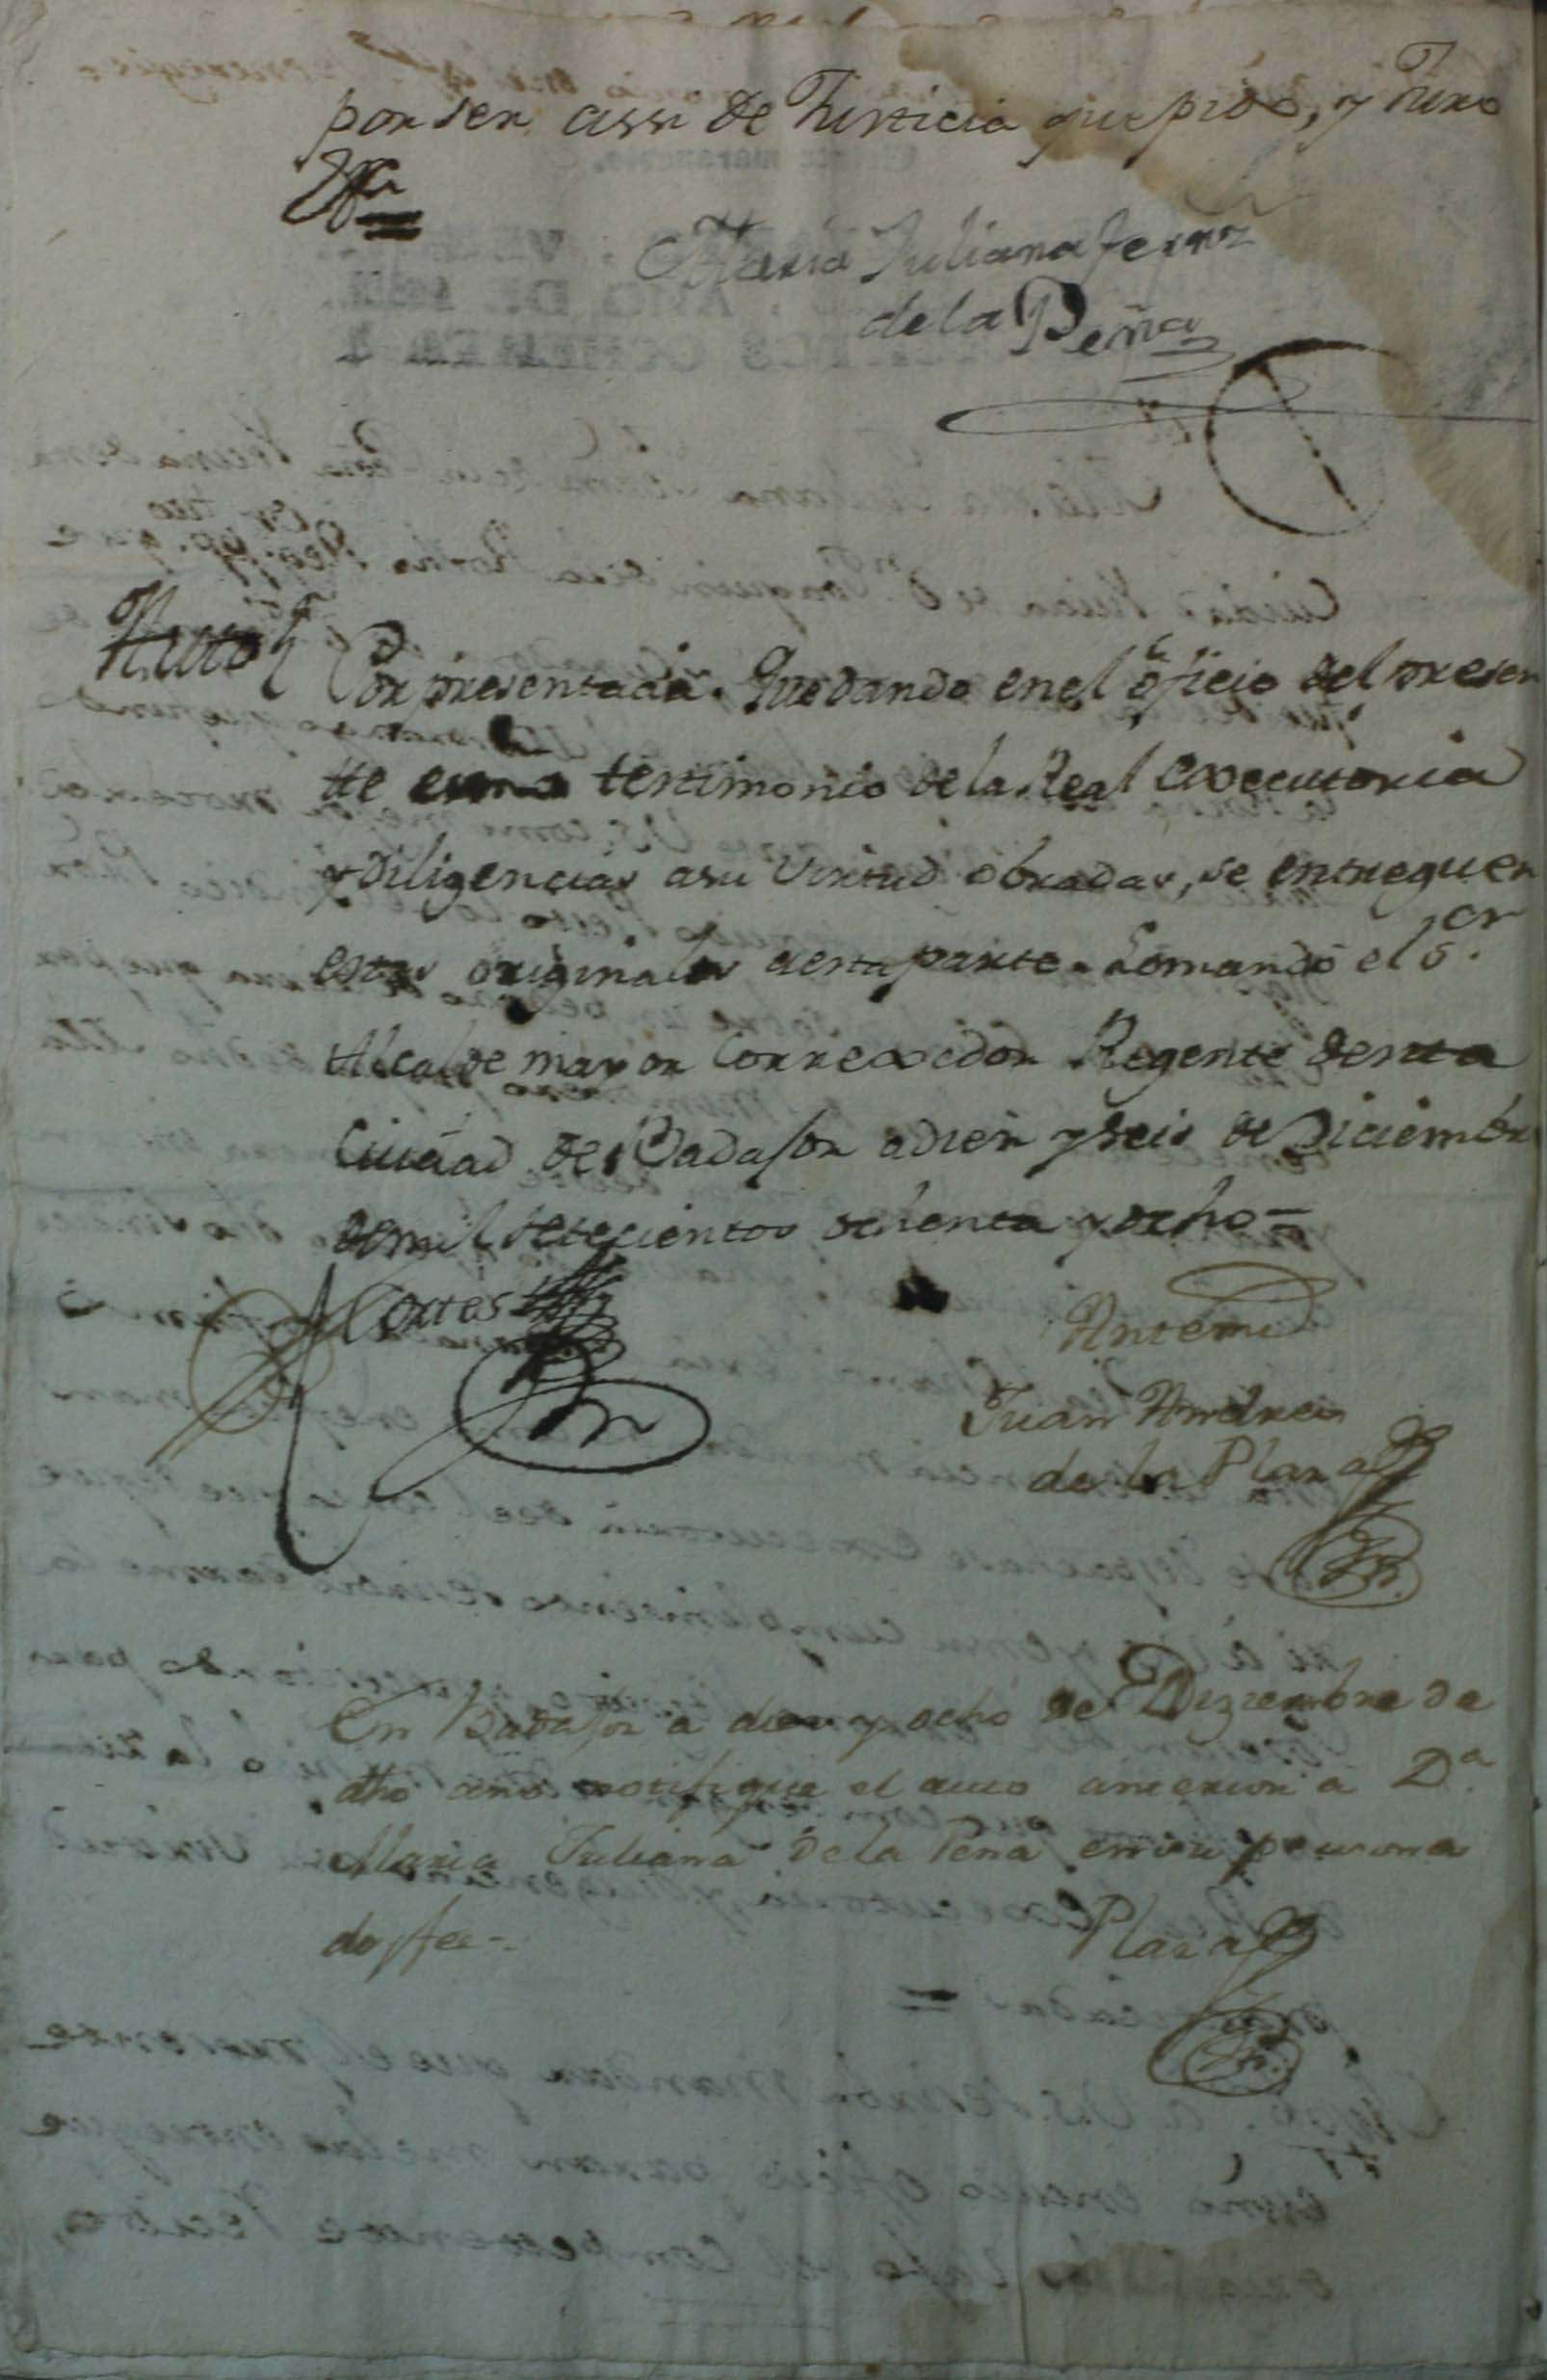 por ser assi de Justicia que pido, y Juro
Maria Juliana fernz
de la Peña
Auto
Por presentada. Quedando en el oficio del presen
te essno testimonio de la Real Executoria
y diligencias a su virtud obradas, se entreguen
estas originales a esta parte. Lo mandó el S.or
Alcalde mayor Correxidor Regente de esta
Ciudad de Badajoz a diez y seis de Diciembre
de mil setecientos ochenta y ocho =
Cortes
Antemi
Juan Andres
de la Plaza
En Badajoz a diez y ocho de Diziembre de
dho año notifique el auto anterior a D.a
Maria Juliana de la Peña en su persona
doy fee -
Plaza